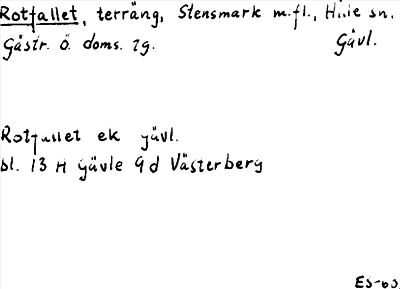 Rotfallet, terräng, Stensmark m.fl., Hille sn.
Gästr. Ö. doms. tg. Gävl.
Rotfallet ek gävl.
bl. 13 H Gävle 9 d Västerberg
ES-63